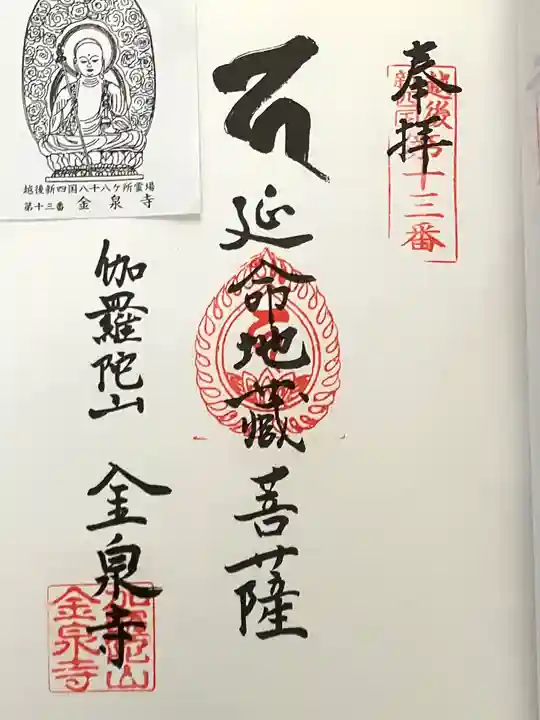 奉拝
越後
十三番
延命地蔵菩薩
伽羅陀山
金泉寺
越後新四国八十八ケ所霊場
第十三番 金泉寺
金泉寺